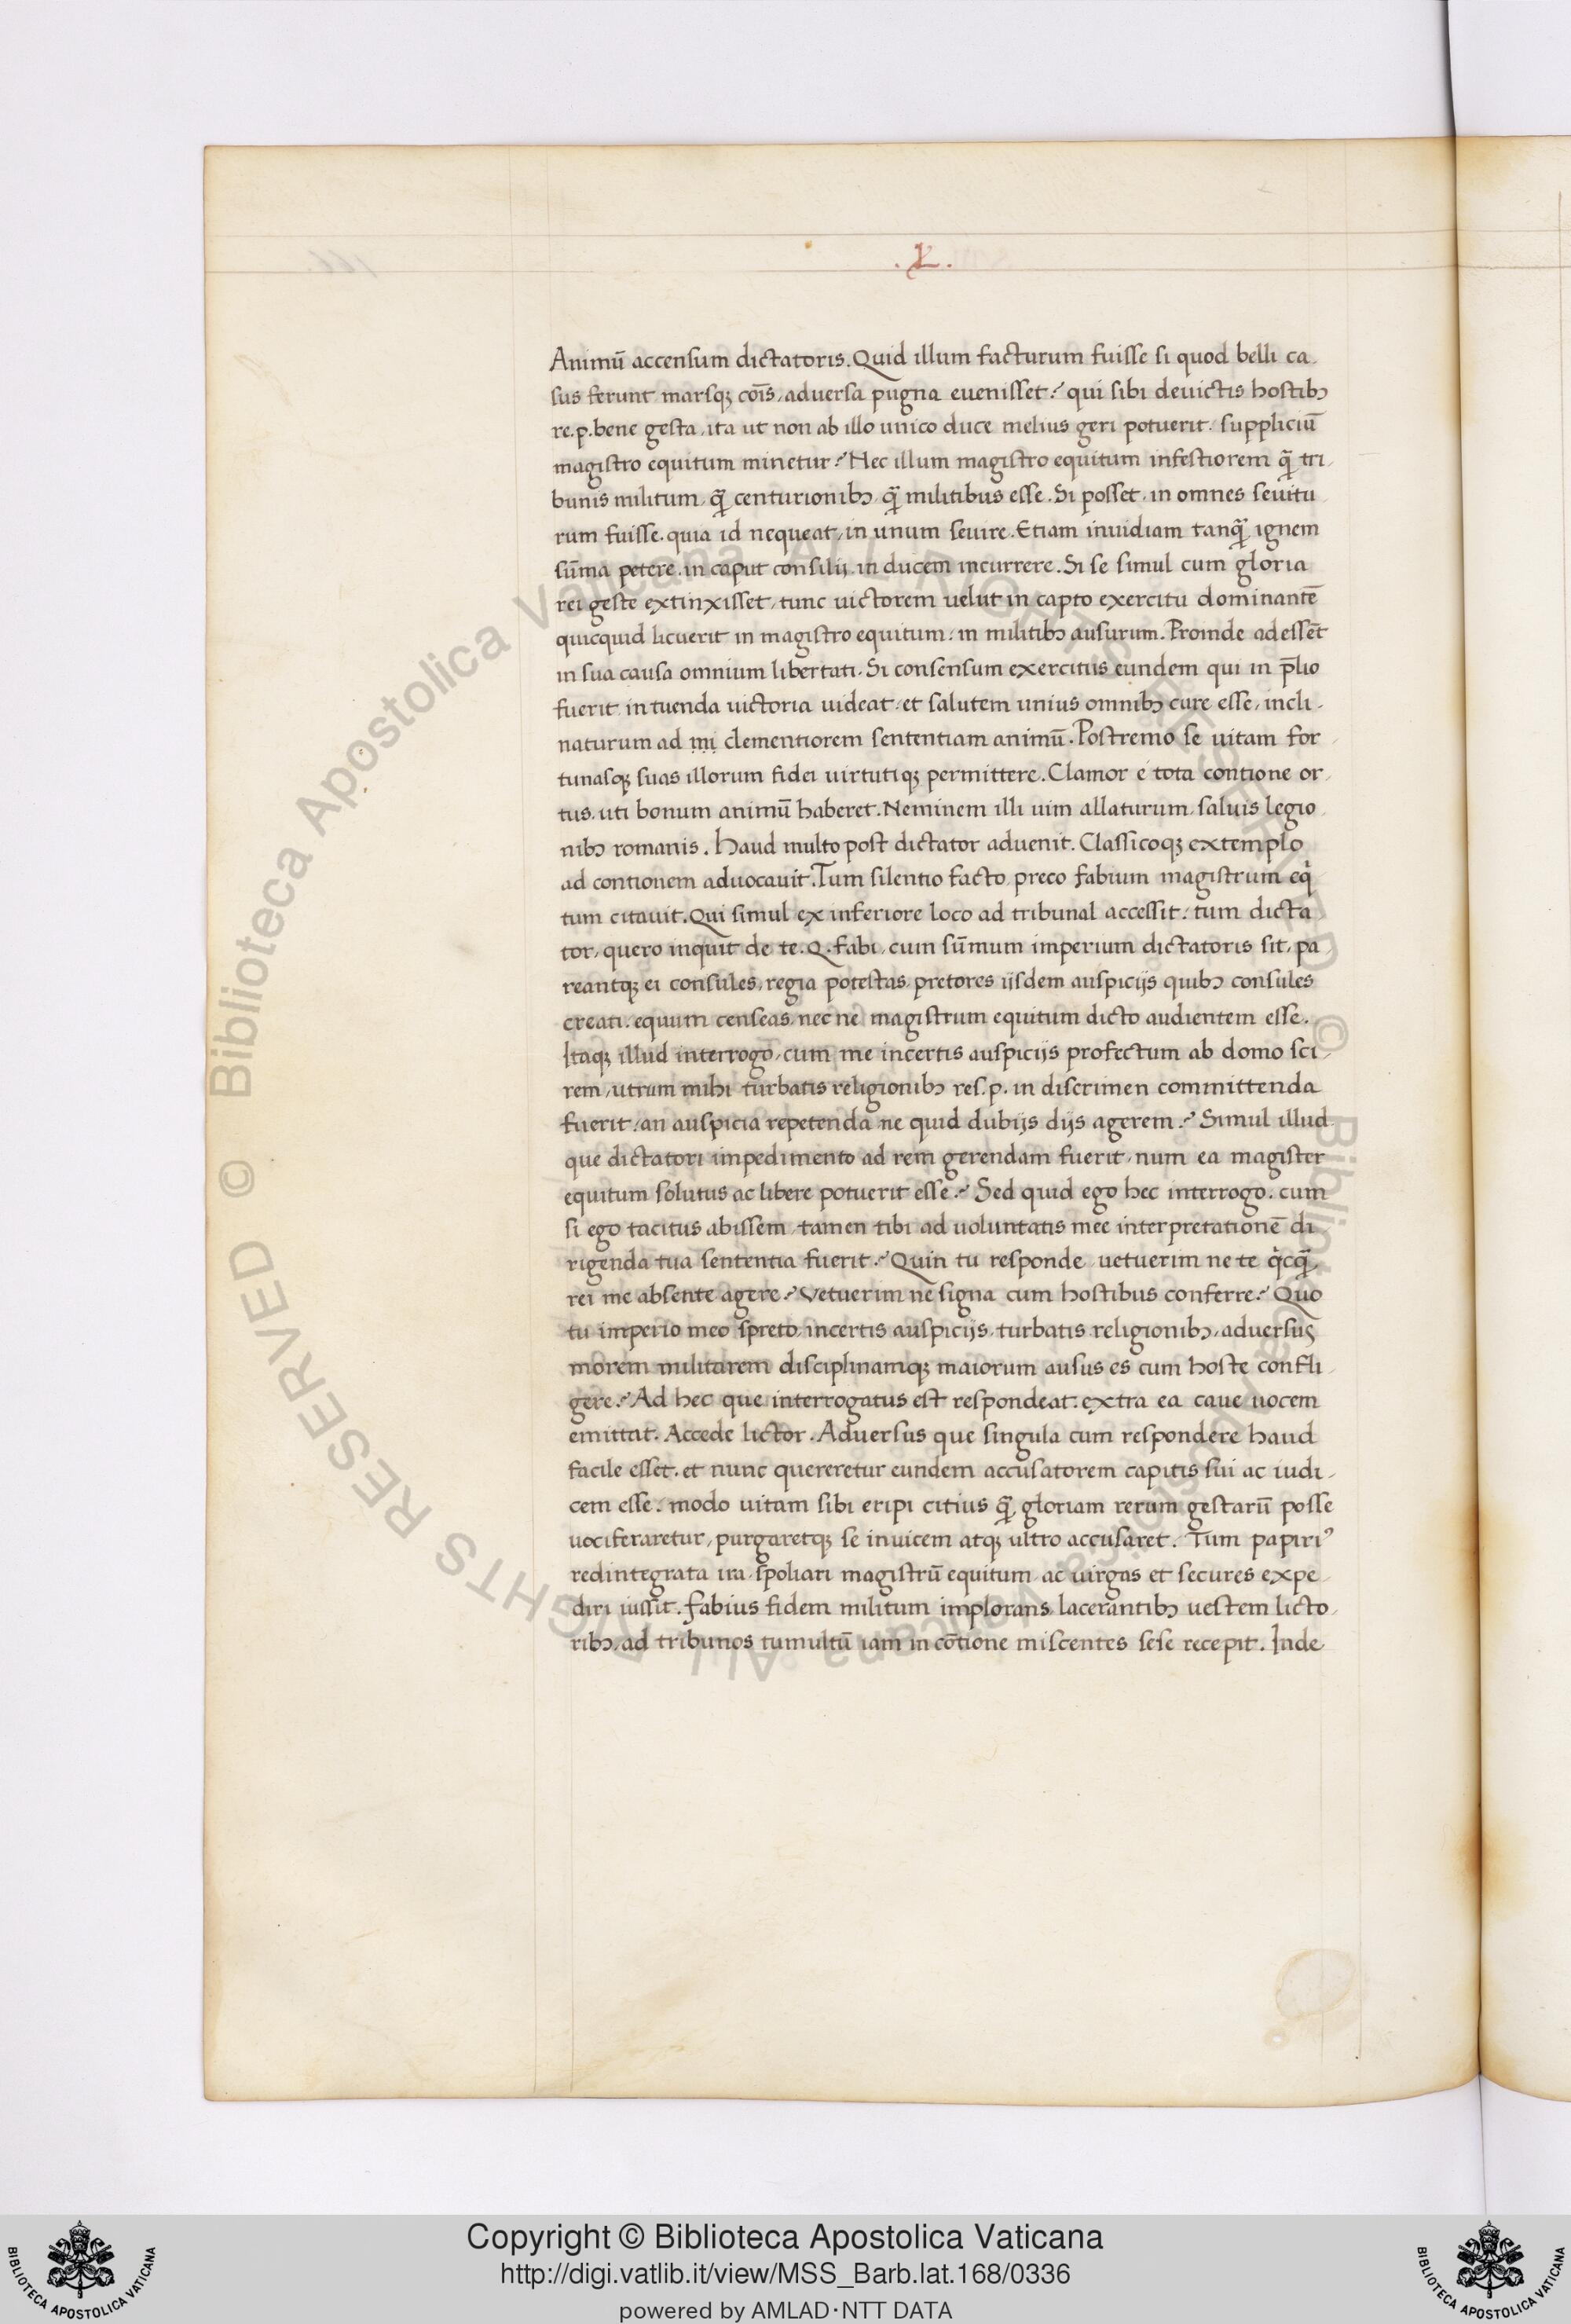 .L.
Animū accensum dictatoris. Quid illum facturum fuisse si quod belli ca,
sus ferunt marsq; cōis, aduersa pugna euenisset? qui sibi deuictis hostibꝫ
re.p. bene gesta, ita ut non ab illo unico duce melius geri potuerit, suppliciū
magistro equitum minetur? Nec illum magistro equitum infestiorem q̄ tri,
bunis militum, q̄ centurionibꝫ, q̄ militibus esse. Si posset, in omnes seuitu
rum fuisse. quia id nequeat, in unum seuire. Etiam inuidiam tanq̄ ignem
sūma petere. in caput consilij, in ducem incurrere. Si se simul cum gloria
rei geste extinxisset, tunc uictorem uelut in capto exercitu dominantē
quicquid licuerit in magistro equitum, in militibꝫ ausurum. Proinde adessēt
in sua causa omnium libertati. Si consensum exercitus eundem qui in p̄lio
fuerit in tuenda uictoria uideat, et salutem unius omnibꝫ cure esse, incli,
naturum ad mi clementiorem sententiam animū. Postremo se uitam for,
tunasq; suas illorum fidei uirtutiq; permittere. Clamor e tota contione or,
tus, uti bonum animū haberet. Neminem illi uim allaturum, saluis legio,
nibꝫ romanis. Haud multo post dictator aduenit. Classicoq; extemplo
ad contionem aduocauit. Tum silentio facto, preco fabium magistrum eqͥ
tum citauit. Qui simul ex inferiore loco ad tribunal accessit, tum dicta
tor, quero inquit de te. Q. fabi, cum sūmum imperium dictatoris sit, pa
reantq; ei consules, regia potestas, pretores ijsdem auspicijs quibꝫ consules
creati, equum censeas, nec ne magistrum equitum dicto audientem esse.
Itaq; illud interrogo, cum me incertis auspicijs profectum ab domo sci,
rem, utrum mihi turbatis religionibꝫ res.p. in discrimen committenda
fuerit, an auspicia repetenda ne quid dubijs dijs agerem? Simul illud
que dictatori impedimento ad rem gerendam fuerit, num ea magister
equitum solutus ac libere potuerit esse? Sed quid ego hec interrogo. cum
si ego tacitus abissem, tamen tibi ad uoluntatis mee interpretationē di
rigenda tua sententia fuerit? Quin tu responde, uetuerim ne te qͥcq̄,
rei me absente agere? Vetuerim ne signa cum hostibus conferre? Quo
tu imperio meo spreto, incertis auspicijs, turbatis religionibꝫ, aduersus
morem militarem disciplinamq; maiorum ausus es cum hoste confli,
gere? Ad hec que interrogatus est respondeat, extra ea caue uocem
emittat. Accede lictor. Aduersus que singula cum respondere haud
facile esset, et nunc quereretur eundem accusatorem capitis sui ac iudi,
cem esse, modo uitam sibi eripi citius q̄, gloriam rerum gestarū posse
uociferaretur, purgaretq; se inuicem atq; ultro accusaret. Tum papiriꝰ
redintegrata ira, spoliari magistrū equitum, ac uirgas et secures expe,
diri iussit. fabius fidem militum implorans, lacerantibꝫ uestem licto,
ribꝫ, ad tribunos tumultū iam in cōtione miscentes sese recepit. Inde
© Biblioteca Apostolica Vaticana ALL RIGHTS RESERVED © Biblioteca Apostolica Vaticana ALL RIGHTS RESERVED
Copyright © Biblioteca Apostolica Vaticana
http://digi.vatlib.it/view/MSS_Barb.lat.168/0336
powered by AMLAD·NTT DATA
BIBLIOTECA APOSTOLICA VATICANA
BIBLIOTECA APOSTOLICA VATICANA